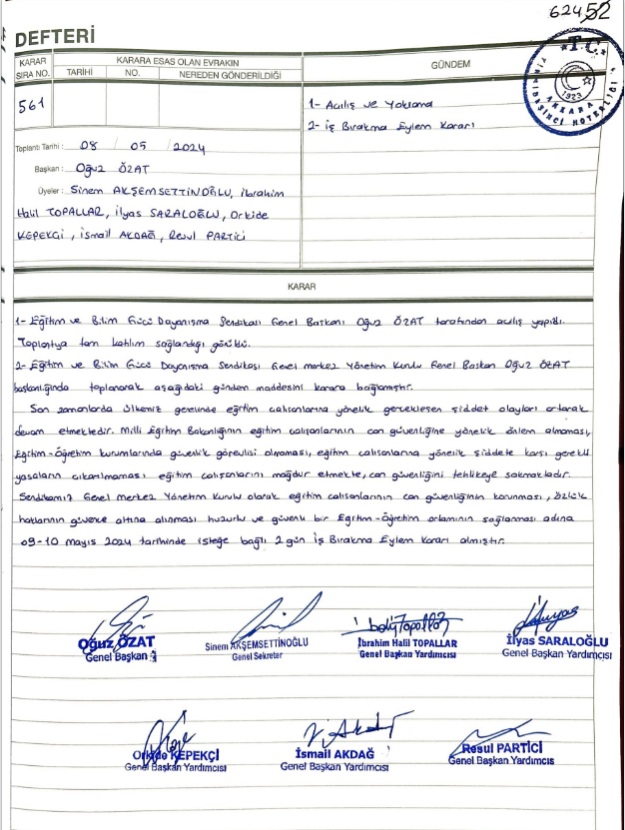 62452
DEFTERİ
KARAR SIRA NO.
KARARA ESAS OLAN EVRAKIN
TARİHİ NO. NEREDEN GÖNDERİLDİĞİ
GÜNDEM
561
1- Açılış ve Yoklama
2- İş Bırakma Eylem Kararı
T.C.
YİRMİBEŞİNCİ NOTERLİĞİ
ANKARA
1923
Toplantı Tarihi: 08 / 05 / 2024
Başkan: Oğuz ÖZAT
Üyeler: Sinem AKŞEMSETTİNOĞLU, İbrahim
Halil TOPALLAR, İlyas SARALOĞLU, Orkide
KEPEKÇİ, İsmail AKDAĞ, Resul PARTİCİ
KARAR
1- Eğitim ve Bilim Gücü Dayanışma Sendikası Genel Başkanı Oğuz ÖZAT tarafından açılış yapıldı.
Toplantıya tam katılım sağlandığı görüldü.
2- Eğitim ve Bilim Gücü Dayanışma Sendikası Genel merkez Yönetim Kurulu Genel Başkan Oğuz ÖZAT
başkanlığında toplanarak aşağıdaki gündem maddesini karara bağlamıştır.
Son zamanlarda ülkemiz genelinde eğitim çalışanlarına yönelik gerçekleşen şiddet olayları artarak
devam etmektedir. Milli Eğitim Bakanlığının eğitim çalışanlarının can güvenliğine yönelik önlem almaması,
Eğitim-Öğretim kurumlarında güvenlik görevlisi olmaması, eğitim çalışanlarına yönelik şiddete karşı gerekli
yasaların çıkarılmaması eğitim çalışanlarını mağdur etmekte, can güvenliğini tehlikeye sokmaktadır.
Sendikamız Genel merkez Yönetim Kurulu olarak eğitim çalışanlarının can güvenliğinin korunması, özlük
haklarının güvence altına alınması huzurlu ve güvenli bir Eğitim-Öğretim ortamının sağlanması adına
09-10 mayıs 2024 tarihinde isteğe bağlı 2 gün İş Bırakma Eylem Kararı almıştır.
Oğuz ÖZAT
Genel Başkan
Sinem AKŞEMSETTİNOĞLU
Genel Sekreter
İbrahim Halil TOPALLAR
Genel Başkan Yardımcısı
İlyas SARALOĞLU
Genel Başkan Yardımcısı
Orkide KEPEKÇİ
Genel Başkan Yardımcısı
İsmail AKDAĞ
Genel Başkan Yardımcısı
Resul PARTİCİ
Genel Başkan Yardımcıs